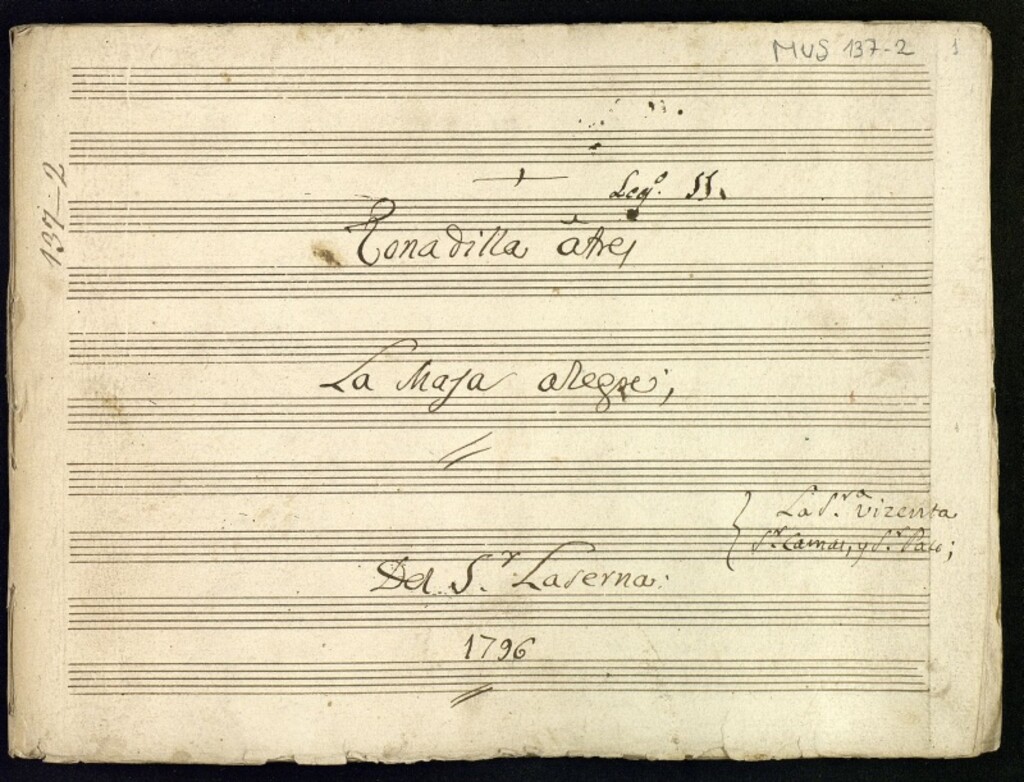 MUS 137-2
1
137-2
Leg.º 11.
Tonadilla â tres
La Maja alegre;
La S.ra Vizenta
S.r Camas, y S.r Paco;
Del S.r Laserna.
1796